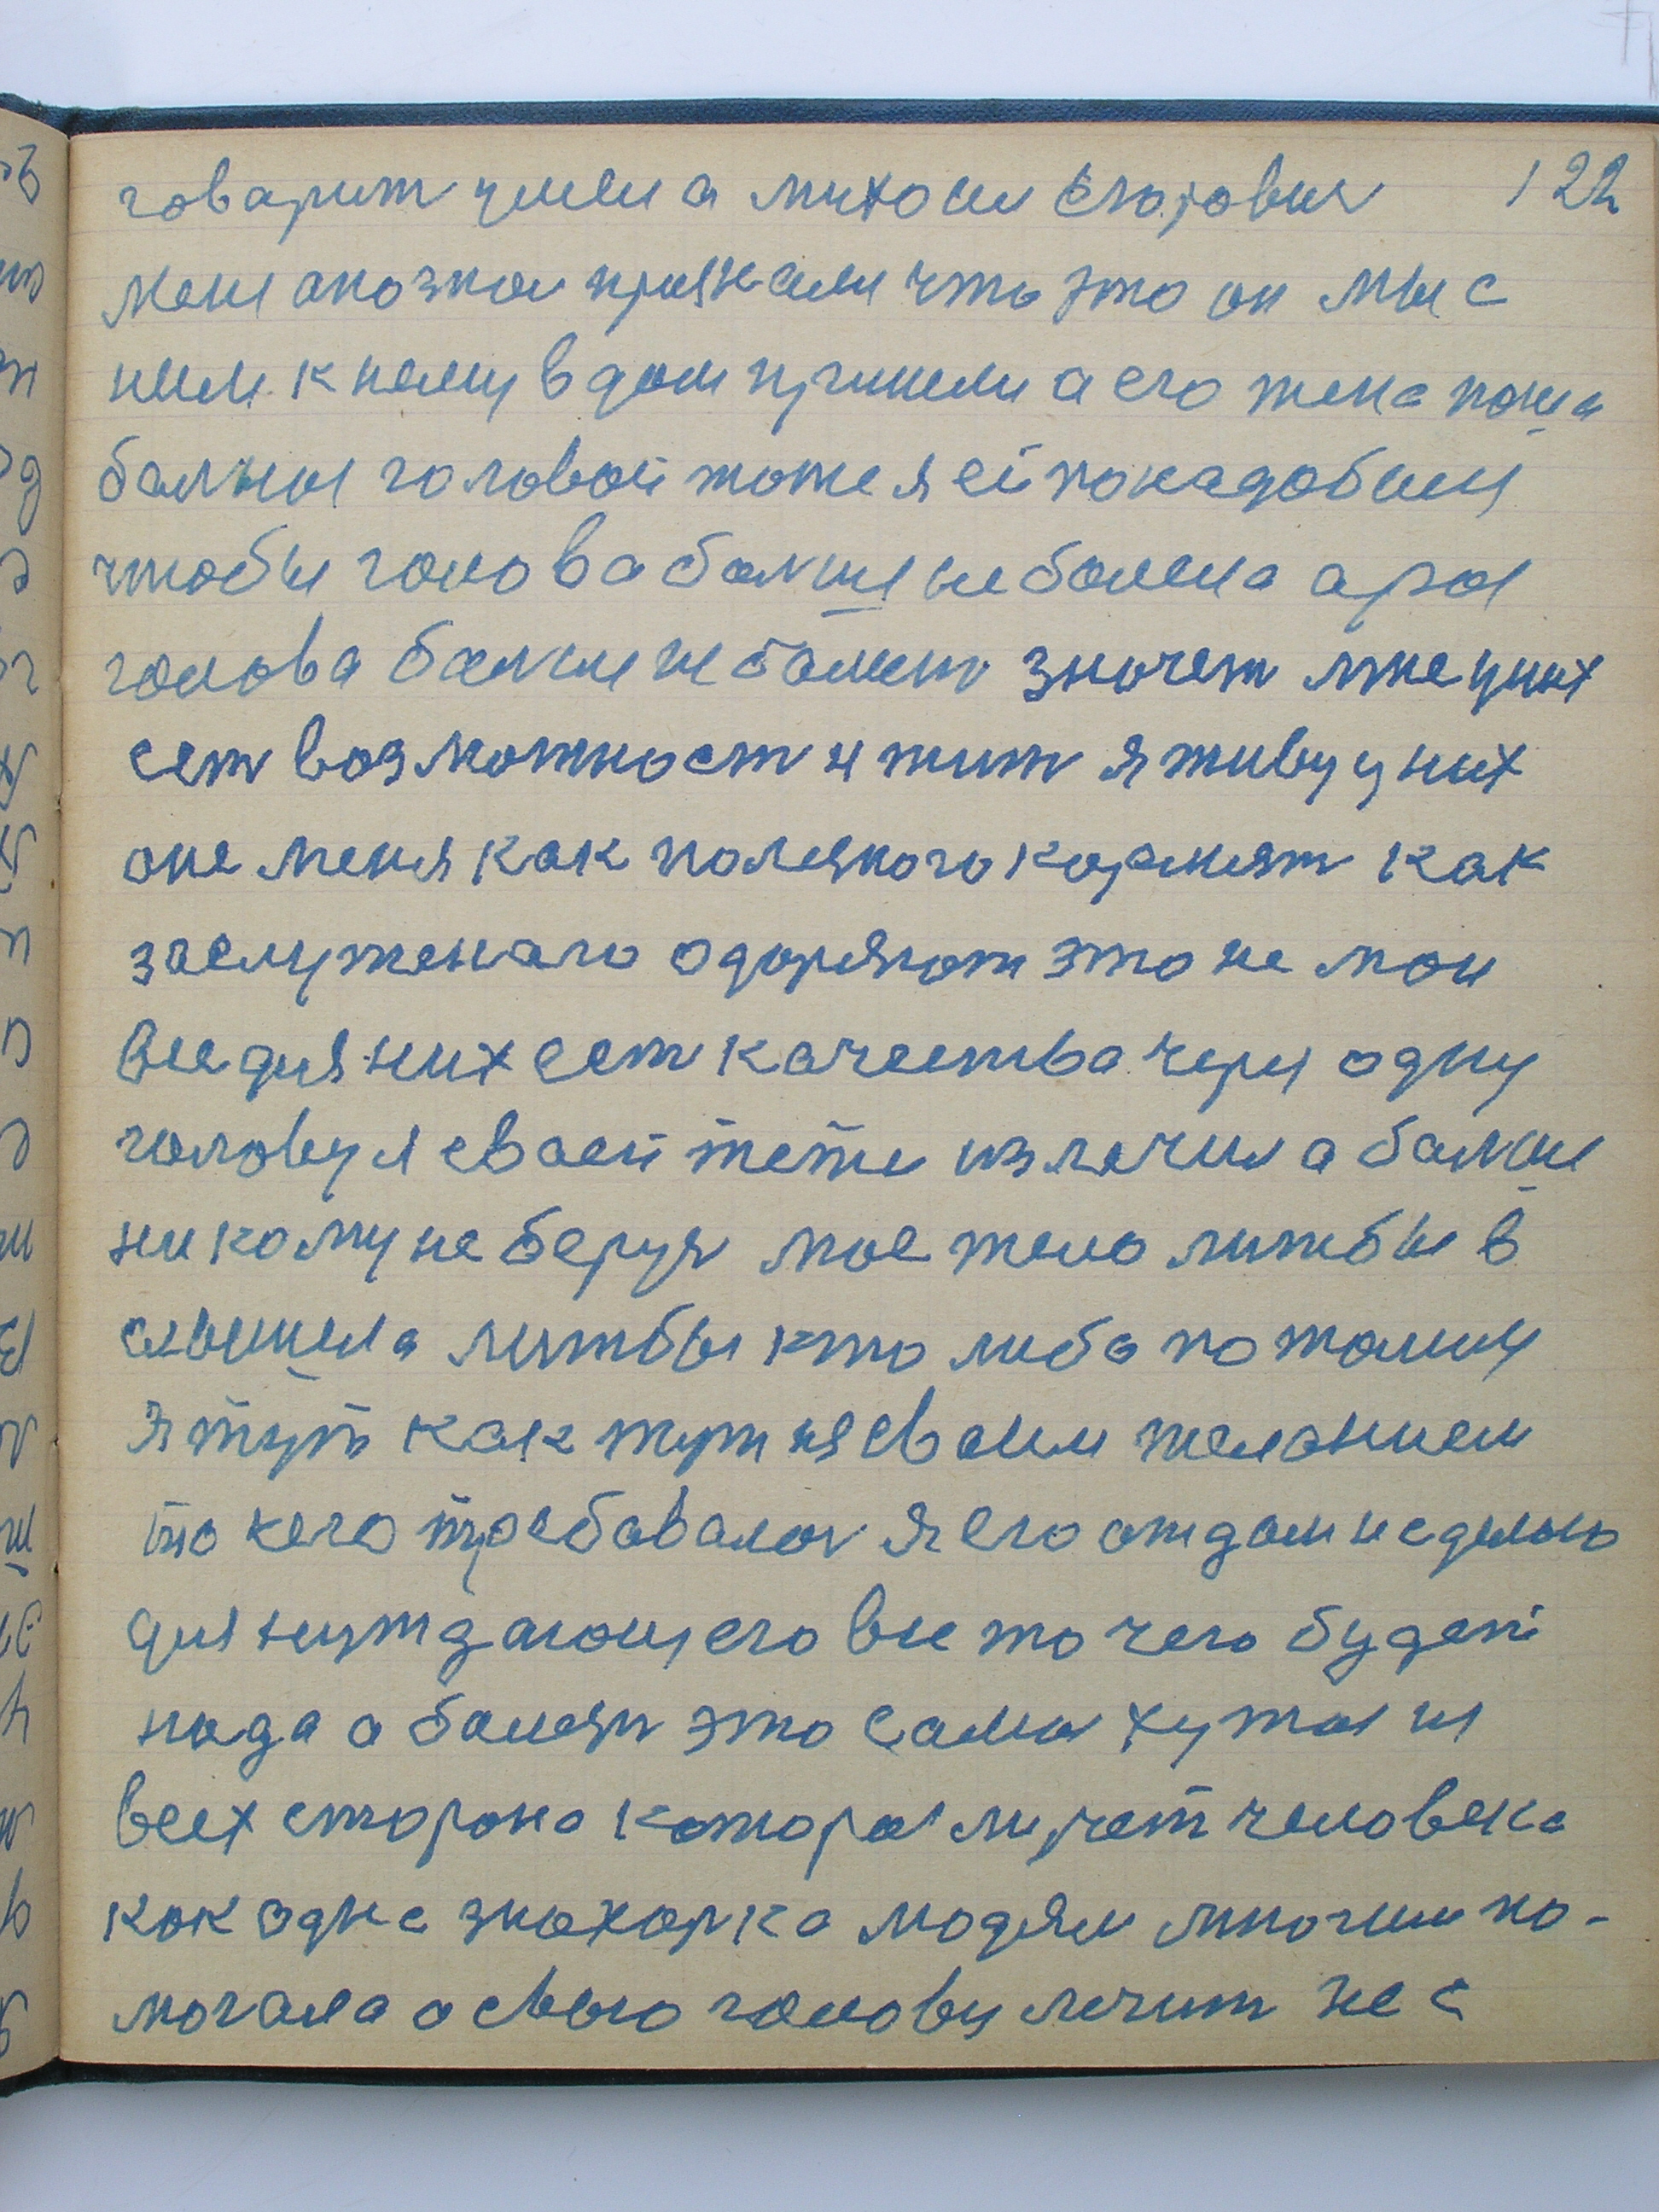 говарит учили а михаил егорович 122
мене апознал признали что это он мы с
ним к нему в дом пришли а его жена тожа
балные головой тоже я ей понадобилс
чтобы голова балше не болела а раз
голова балше не балит значет мне у них
ест возможност и жит я живу у них
оне меня как полезного кормят как
заслуженаго одоряют это не мои
все для них ест качества через одну
голову я сваей тети излечил а балше
никому не берус мое тело лижбы в
слышела лижбы кто либо пожалилс
я тут как тут я сваим желанием
то кего требовалос я его отдам и сделаю
для нуждающего все то чего будет
нада а болезн это самы хужы из
всех сторона каторы мучает человека
как одна знахарка людям многим по-
могала а свою голову лечит не с